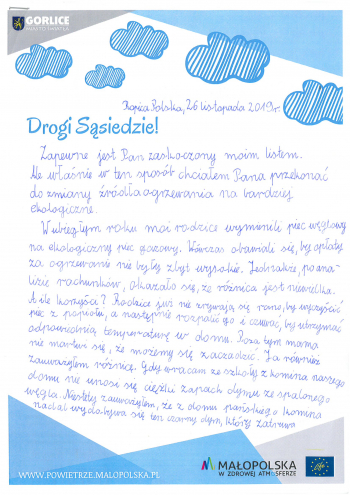 GORLICE
MIASTO ŚWIATŁA
Ropica Polska, 26 listopada 2019r.
Drogi Sąsiedzie!
Zapewne jest Pan zaskoczony moim listem.
Ale właśnie w ten sposób chciałem Pana przekonać
do zmiany źródła ogrzewania na bardziej
ekologiczne.
W ubiegłym roku moi rodzice wymienili piec węglowy
na ekologiczny piec gazowy. Wówczas obawiali się, by opłaty
za ogrzewanie nie były zbyt wysokie. Jednakże po ana-
lizie rachunków, okazało się, że różnica jest niewielka.
A ile korzyści? Rodzice już nie zrywają się rano, by wyczyścić
piec z popiołu, a następnie rozpalić go i czuwać, by utrzymać
odpowiednią temperaturę w domu. Poza tym mama
nie martwi się, że możemy się zaczadzić. Ja również
zauważyłem różnicę. Gdy wracam ze szkoły z komina naszego
domu nie unosi się ciężki zapach dymu ze spalonego
węgla. Niestety zauważyłem, że z domu pańskiego komina
nadal wydobywa się ten czarny dym, który zatruwa
WWW.POWIETRZE.MALOPOLSKA.PL
MAŁOPOLSKA
W ZDROWEJ ATMOSFERZE